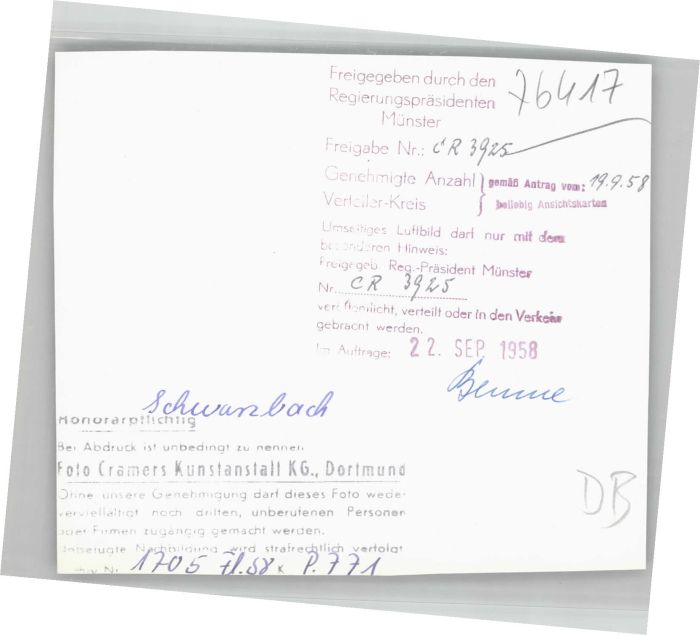 Freigegeben durch den
Regierungspräsidenten
Münster
76417
Freigabe Nr.: CR 3925
Genehmigte Anzahl } gemäß Antrag vom: 19.9.58
Verteiler-Kreis } beliebig Ansichtskarten
Umseitiges Luftbild darf nur mit dem
besonderen Hinweis:
Freigegeb. Reg.-Präsident Münster
Nr. CR 3925
veröffentlicht, verteilt oder in den Verkehr
gebracht werden.
Im Auftrage: 22. SEP. 1958
Schwarzbach
Honorarpflichtig
Bei Abdruck ist unbedingt zu nennen
Foto Cramers Kunstanstalt KG., Dortmund
Ohne unsere Genehmigung darf dieses Foto weder
vervielfältigt noch dritten, unberufenen Personen
oder Firmen zugängig gemacht werden.
Unbefugte Nachbildung wird strafrechtlich verfolgt
Archiv Nr. 1705 Fl.58 K P.771
DB